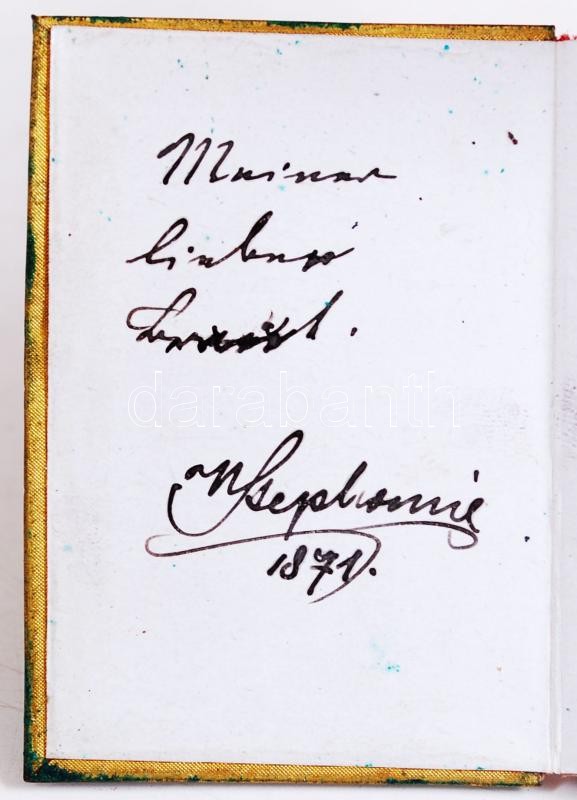 Meiner
lieben
Braut.
darabanth
Stephanie
1871.